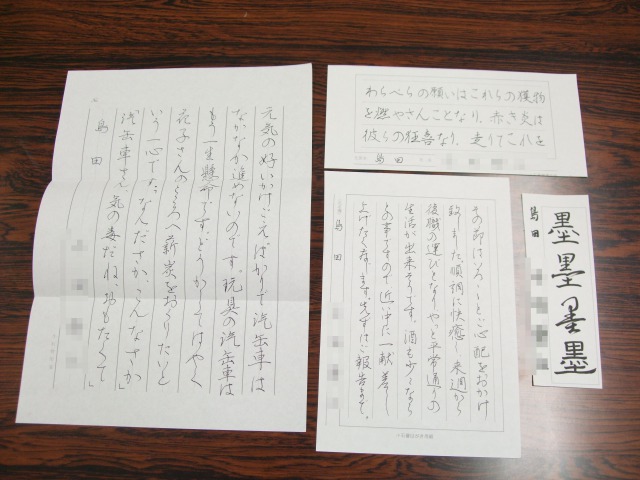 元気の好いかけごえばかりで汽缶車は
なかなか進めないのです。玩具の汽缶車は
もう一生懸命です。どうかしてはやく
花子さんのところへ薪炭をおくりたいと
いう一心です。なんださか、こんなさか
「汽缶車さん、気の毒だね、おもたくて」
島田
わらべらの願いはこれらの獲物
を燃やさんことなり。赤き炎は
彼らの狂喜なり。走りてこれを
島田
その節はいろいろとご心配をおかけ
致しました。順調に快癒し来週から
復職の運びとなりやっと平常通りの
生活が出来そうです。酒も少々なら
との事ですので近い中に一献差し
上げたく存じます。先ずはご報告まで。
島田
墨墨墨墨
島田